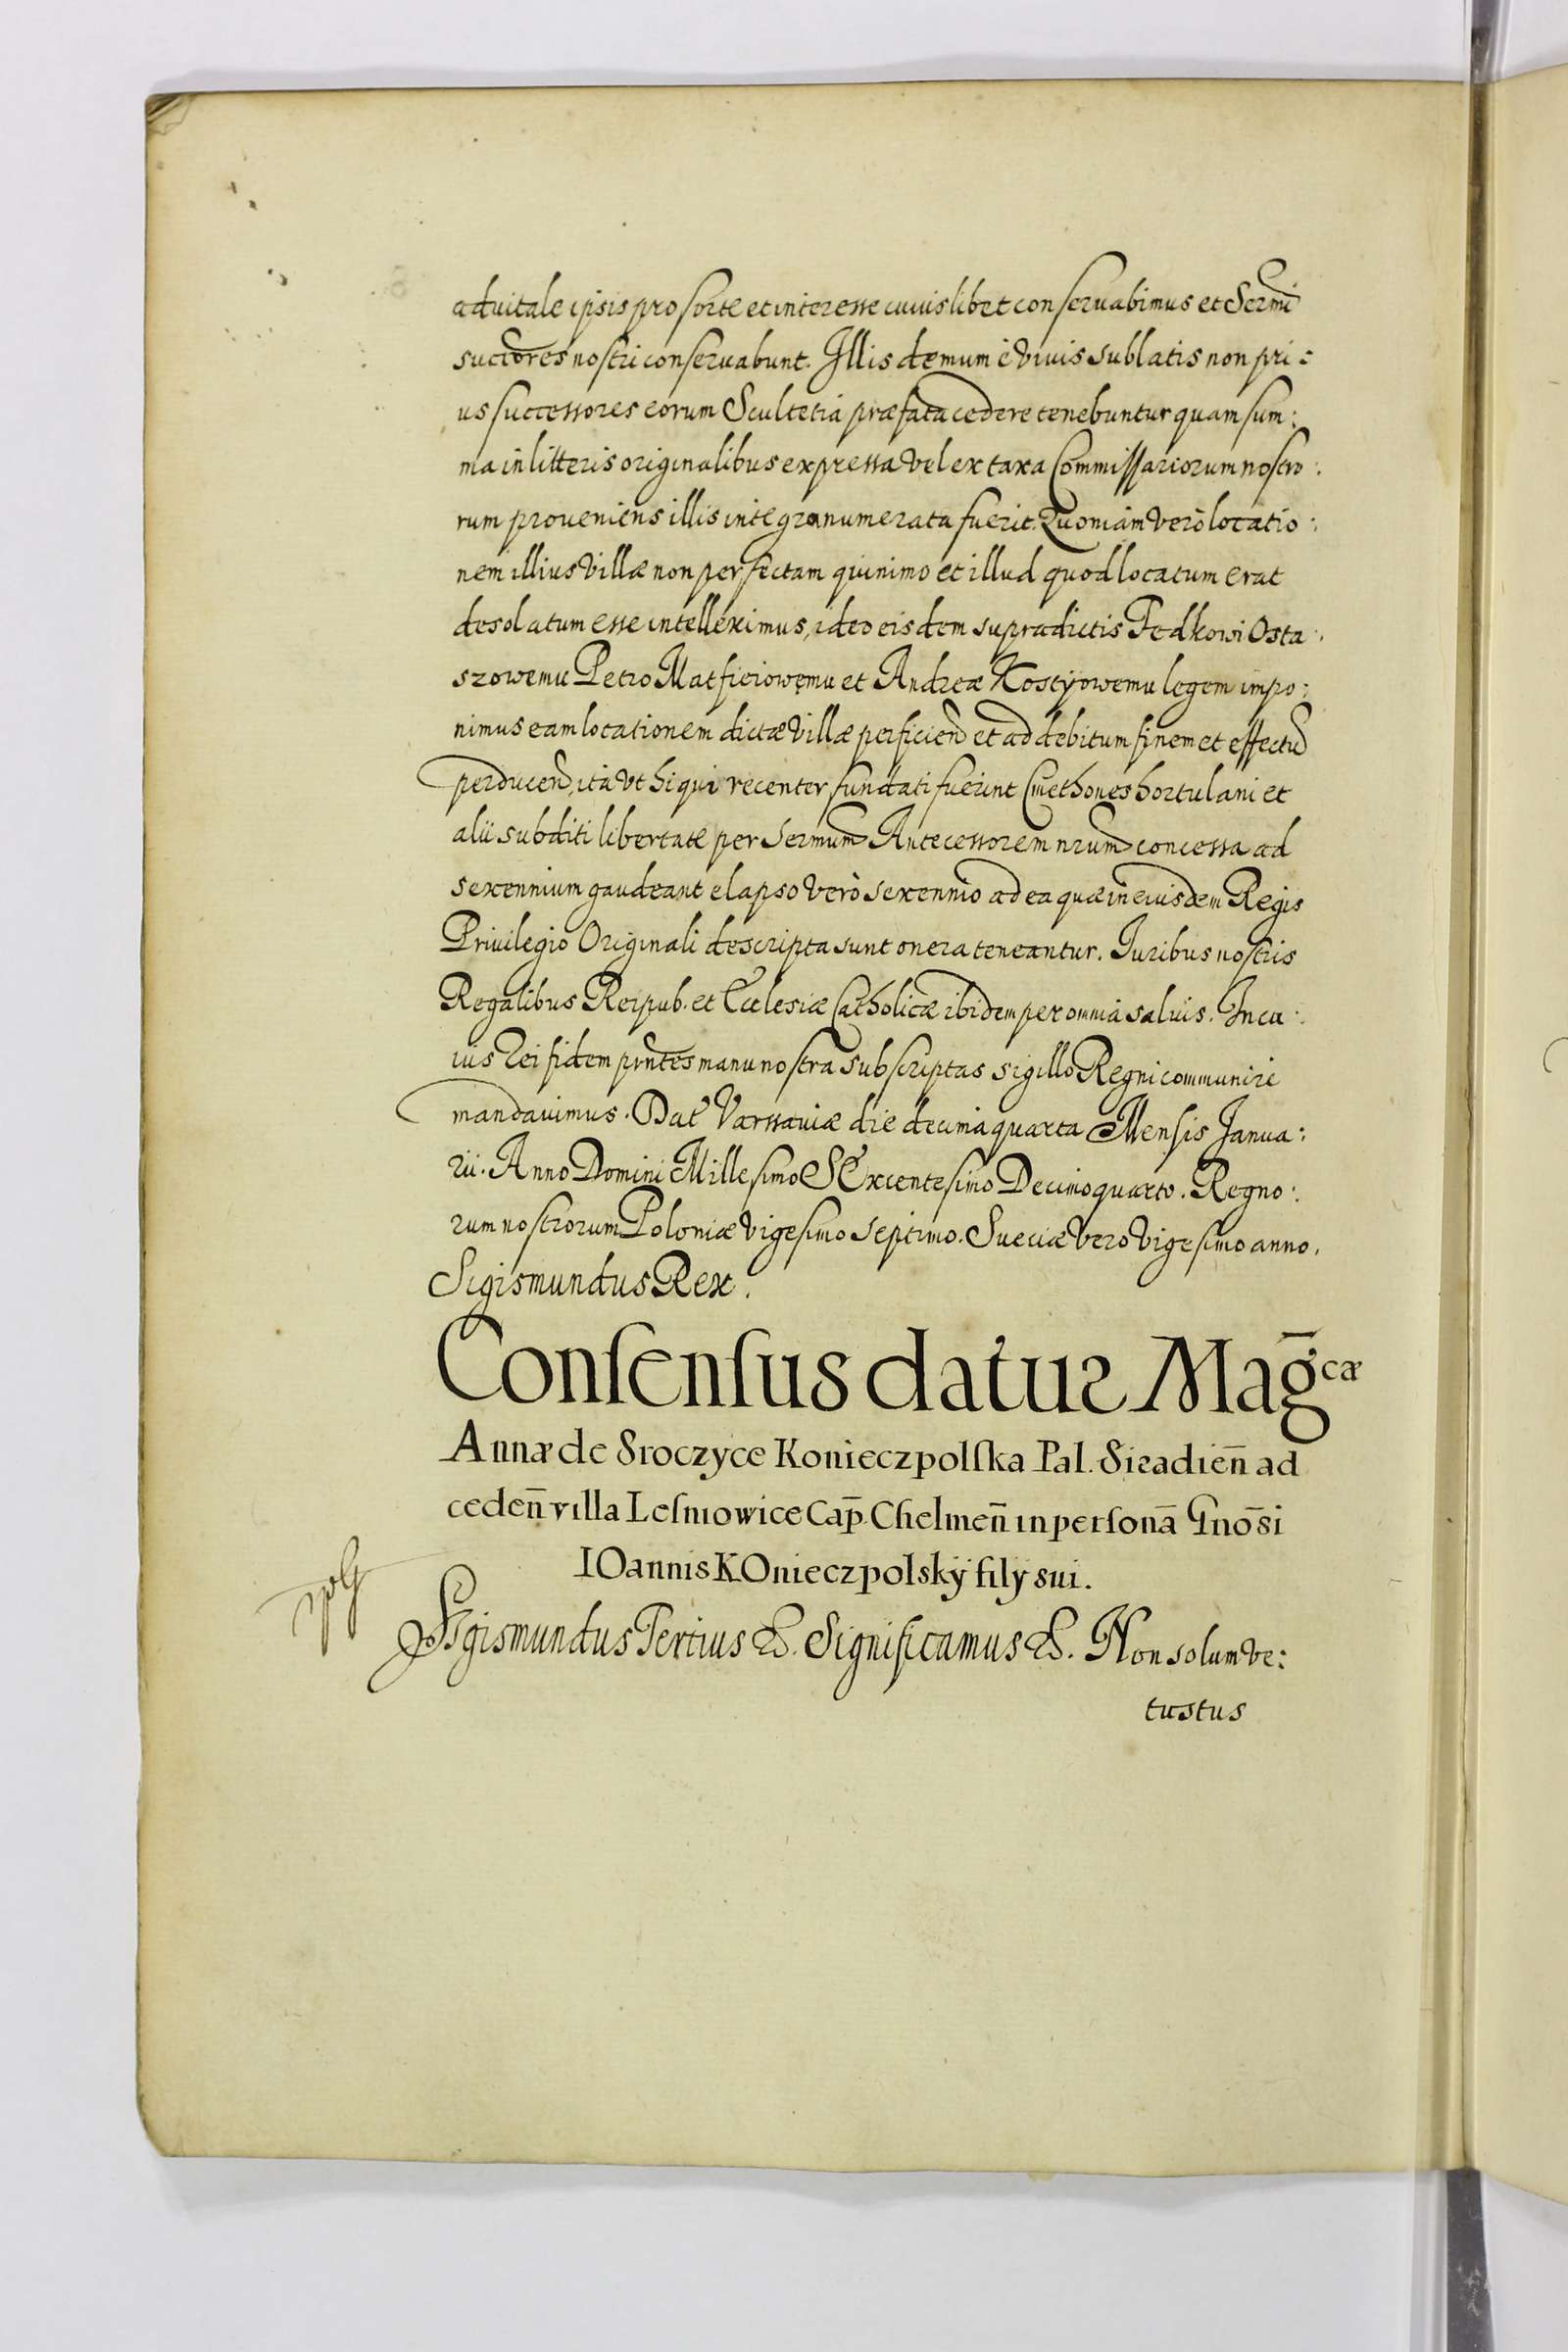 advitale ipsis pro sorte et interesse cuiuslibet conservabimus et Sermi
succores nostri conservabunt. Illis demum è vivis sublatis non pri:
us successores eorum Scultetia præfata cedere tenebuntur quam sum:
ma in litteris originalibus expressa vel ex taxa Commissariorum nostro:
rum proveniens illis integra numerata fuerit. Quoniam verò locatio:
nem illius villæ non perfectam quinimo et illud quod locatum erat
desolatum esse intelleximus, ideo eisdem supradictis Fedkowi Osta:
szowemu Petro Matficiowemu et Andreæ Kostÿowemu legem impo:
nimus eam locationem dictæ villæ perficien̄ et ad debitum finem et effectū
perducen̄, ita ut hi qui recenter fundati fuerint Cmethones hortulani et
alii subditi libertate per Sermum Antecessorem nrum concessa ad
sexennium gaudeant elapso verò sexennio ad ea quæ in eiusdem Regis
Privilegio Originali descripta sunt onera teneantur. Iuribus nostris
Regalibus Reipub. et Ecclesiæ Catholicæ ibidem per omnia salvis. In cu:
ius rei fidem pn̄tes manu nostra subscriptas sigillo Regni communiri
mandavimus. Dat Varssaviæ die decima quarta Mensis Janua:
rii. Anno Domini Millesimo SExcentesimo Decimo quarto. Regno:
rum nostrorum Poloniæ vigesimo septimo. Sueciæ vero vigesimo anno.
Sigismundus Rex.
Consensus datur Mag̅cæ
Annæ de Sroczyce Konieczpolska Pal. Siradien̄ ad
ceden̄ villa Lesniowice Cap̄. Chelmen̄ in personā Gnōsi
IOannis KOnieczpolskÿ filÿ sui.
Sigismundus Tertius &. Significamus &. Non solum ve:
tustus